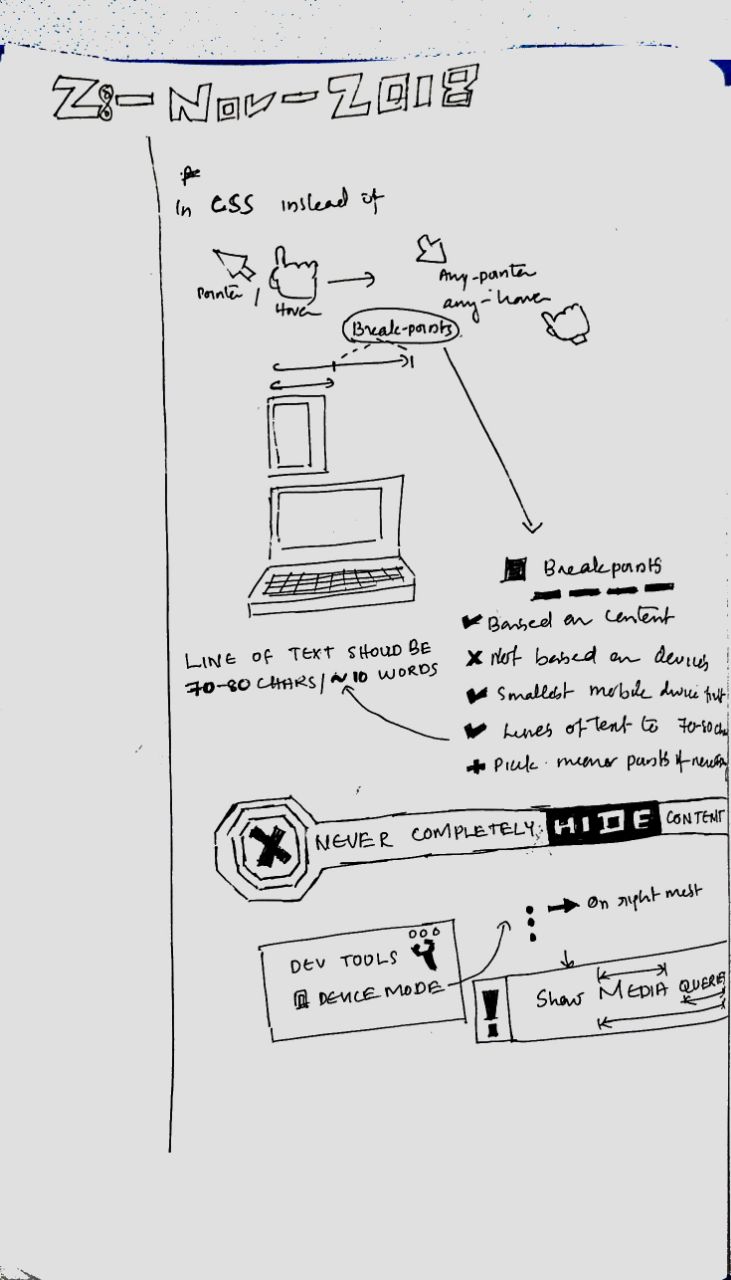 28-Nov-2018
In CSS instead of
Pointer /
Hover
Any-pointer
any-hover
Break-points
Breakpoints
Based on Content
Not based on devices
Smallest mobile device first
Lines of text to 70-80 cha
Pick minor points if
LINE OF TEXT SHOULD BE
70-80 CHARS/ ~10 WORDS
NEVER COMPLETELY HIDE CONTENT
On right most
DEV TOOLS
DEVICE MODE
! Show MEDIA QUERIE